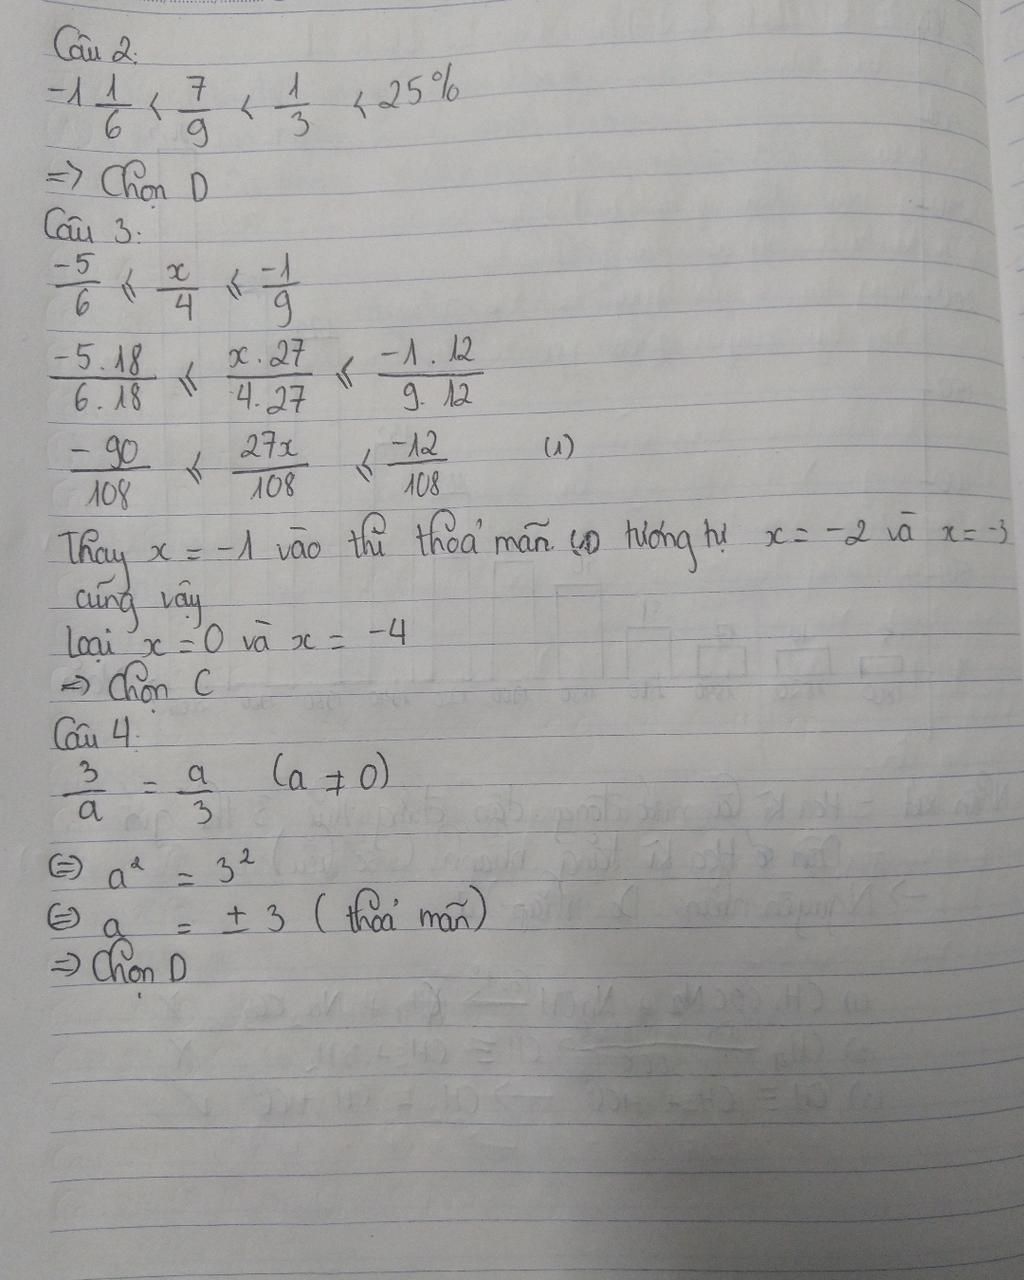 Câu 2:
-1 1/6 < 7/9 < 1/3 < 25%
=> Chọn D
Câu 3:
-5/6 ≤ x/4 ≤ -1/9
-5.18/6.18 ≤ x.27/4.27 ≤ -1.12/9.12
-90/108 ≤ 27x/108 ≤ -12/108 (1)
Thay x = -1 vào thì thỏa mãn (1) tương tự x = -2 và x = -3
cũng vậy
Loại x = 0 và x = -4
=> Chọn C
Câu 4:
3/a = a/3 (a ≠ 0)
<=> a² = 3²
<=> a = ± 3 (thỏa mãn)
=> Chọn D